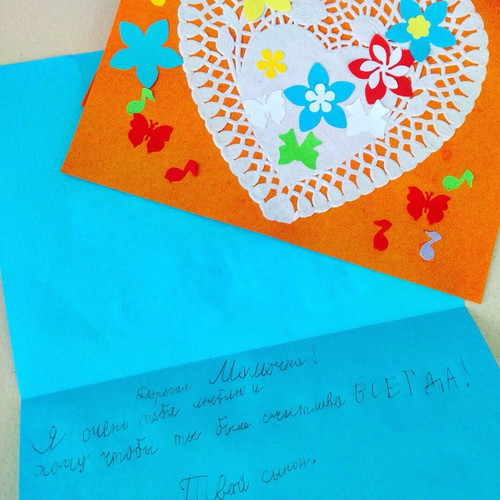 Дорогая Мамочка!
Я очень тебя люблю и
хочу чтобы ты была счастлива ВСЕГДА!
Твой сынок.